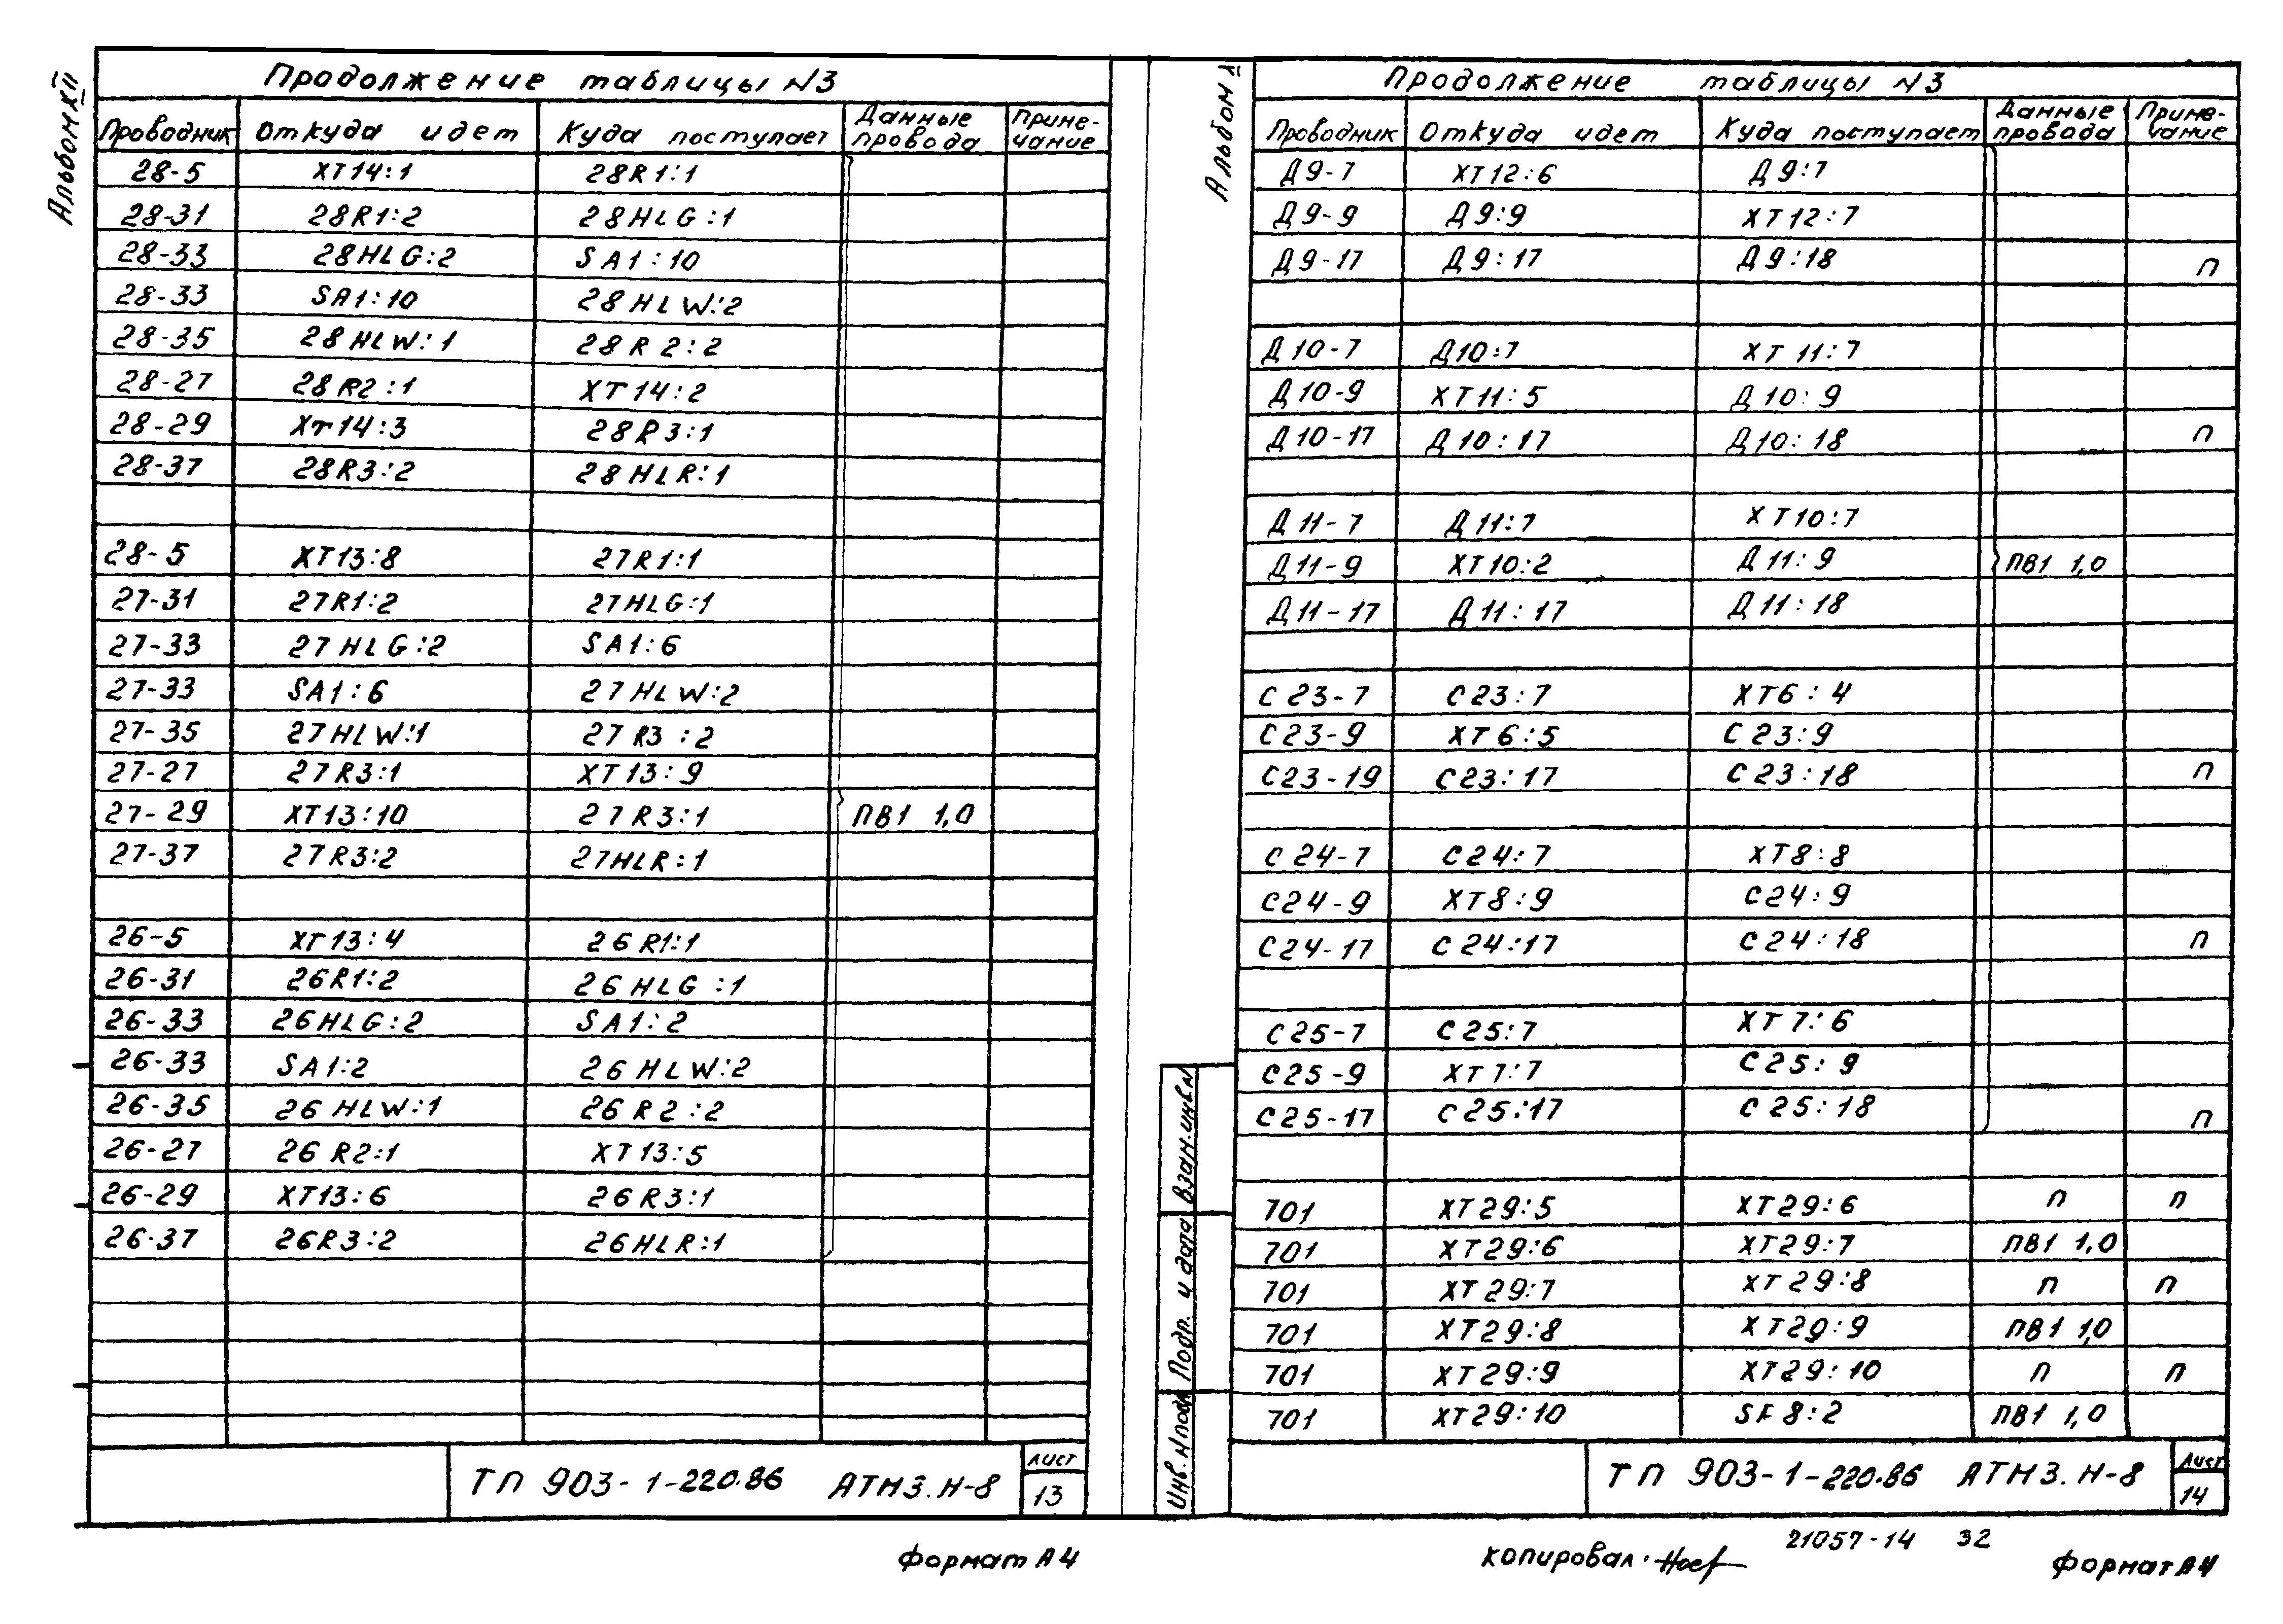 Альбом XII
Продолжение таблицы N3
Проводник Откуда идет Куда поступает Данные провода Приме-чание
28-5 XT14:1 28R1:1
28-31 28R1:2 28HLG:1
28-33 28HLG:2 SA1:10
28-33 SA1:10 28HLW:2
28-35 28HLW:1 28R2:2
28-27 28R2:1 XT14:2
28-29 XT14:3 28R3:1
28-37 28R3:2 28HLR:1
28-5 XT13:8 27R1:1
27-31 27R1:2 27HLG:1
27-33 27HLG:2 SA1:6
27-33 SA1:6 27HLW:2
27-35 27HLW:1 27R3:2
27-27 27R3:1 XT13:9
27-29 XT13:10 27R3:1 ПВ1 1,0
27-37 27R3:2 27HLR:1
26-5 XT13:4 26R1:1
26-31 26R1:2 26HLG:1
26-33 26HLG:2 SA1:2
26-33 SA1:2 26HLW:2
26-35 26HLW:1 26R2:2
26-27 26R2:1 XT13:5
26-29 XT13:6 26R3:1
26-37 26R3:2 26HLR:1
ТП 903-1-220.86 АТМ3.Н-8
Лист
13
Формат А4
Альбом
Продолжение таблицы N3
Проводник Откуда идет Куда поступает Данные провода Приме-чание
Д9-7 XT12:6 Д9:7
Д9-9 Д9:9 XT12:7
Д9-17 Д9:17 Д9:18 П
Д10-7 Д10:7 XT11:7
Д10-9 XT11:5 Д10:9
Д10-17 Д10:17 Д10:18 П
Д11-7 Д11:7 XT10:7
Д11-9 XT10:2 Д11:9 ПВ1 1,0
Д11-17 Д11:17 Д11:18
С23-7 С23:7 XT6:4
С23-9 XT6:5 С23:9
С23-19 С23:17 С23:18 П
С24-7 С24:7 XT8:8
С24-9 XT8:9 С24:9
С24-17 С24:17 С24:18 П
С25-7 С25:7 XT7:6
С25-9 XT7:7 С25:9
С25-17 С25:17 С25:18 П
701 XT29:5 XT29:6 П П
701 XT29:6 XT29:7 ПВ1 1,0
701 XT29:7 XT29:8 П П
701 XT29:8 XT29:9 ПВ1 1,0
701 XT29:9 XT29:10 П П
701 XT29:10 SF8:2 ПВ1 1,0
Взам.инв.N
Подп. и дата
Инв.Nподл
ТП 903-1-220.86 АТМ3.Н-8
Лист
14
Копировал:
21057-14 32
Формат А4